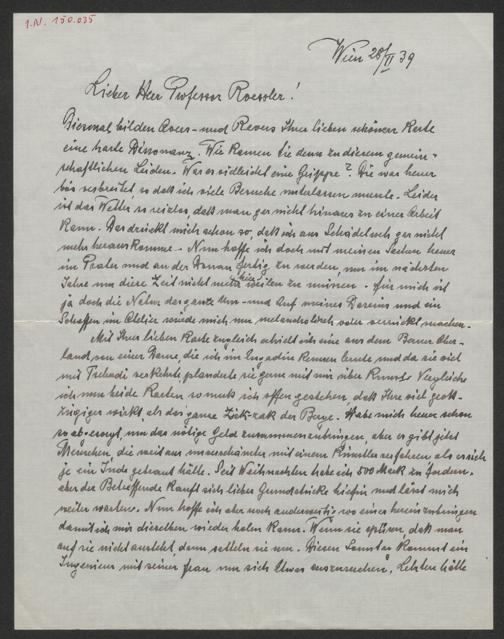 I.N. 150.035
Wien 28/II 39
Lieber Herr Professor Roessler!
Diesmal bilden Avers- und Revers Ihrer lieben schönen Karte
eine harte Dissonanz. Wie kamen Sie denn zu diesem gemein-
schaftlichen Leiden. War es vielleicht eine Grippe? Die war heuer
bös verbreitet so daß ich viele Besuche unterlassen musste. Leider
ist das Wetter so reizlos, daß man gar nicht hinaus zu einer Arbeit
kann. Das drückt mich schon so, daß ich aus Schädelweh gar nicht
mehr herauskomme. - Nun hoffe ich doch mit meinen Sachen heuer
im Prater und an der Donau fertig zu werden, um im nächsten
Jahre um diese Zeit nicht mehr hier weilen zu müssen. - Für mich ist
ja doch die Natur das ganze Um- und Auf meines Daseins und ein
Schaffen im Atelier würde mich nur melancholisch oder verrückt machen.
Mit Ihrer lieben Karte zugleich erhielt ich eine aus dem Berner Ober-
land, von einer Dame, die ich im Engadin kennen lernte und da sie viel
mit Tschudi verkehrte plauderte sie gerne mit mir über Kunst. Vergleiche
ich nun beide Karten so muß ich offen gestehen, daß Ihre viel groß-
zügiger wirkt, als das ganze Zick-zak der Berge. - Habe mich heuer schon
so abgesorgt, um das nötige Geld zusammenzubringen, aber es gibt jetzt
Menschen, die weit aus unverschämter mit einem Künstler verfahren als er sich
je ein Jude getraut hätte. Seit Weihnachten habe ich 500 Mark zu fordern.
aber der Betreffende kauft sich lieber Grundstücke hiefür und lässt mich
weiter warten. Nun hoffe ich aber noch anderweitig wo eines hereinzubringen
damit ich mir dieselben wieder holen kann. Wenn sie spüren, daß man
auf sie nicht ansteht, dann satteln sie um. Diesen Samstag kommt ein
Ingenieur mit seiner Frau um sich Etwas auszusuchen. Letzten hätte